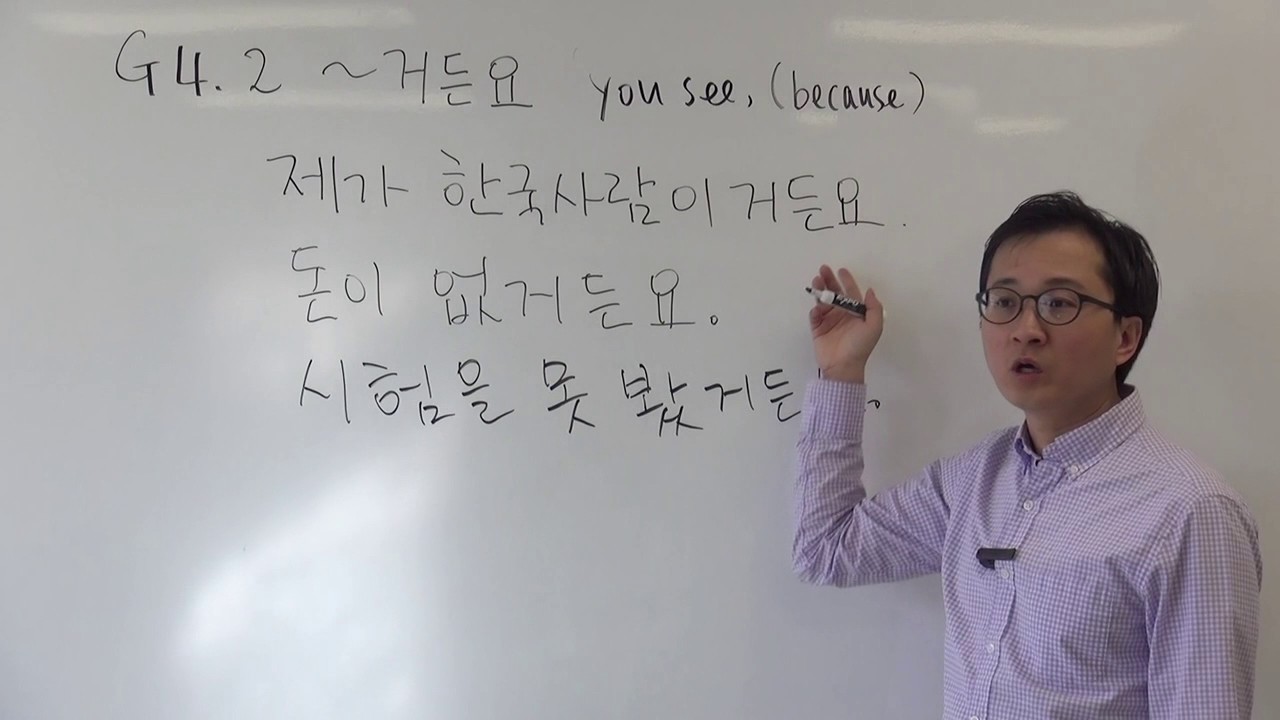 G4.2 ~거든요 you see, (because)
제가 한국사람이거든요.
돈이 없거든요.
시험을 못 봤거든